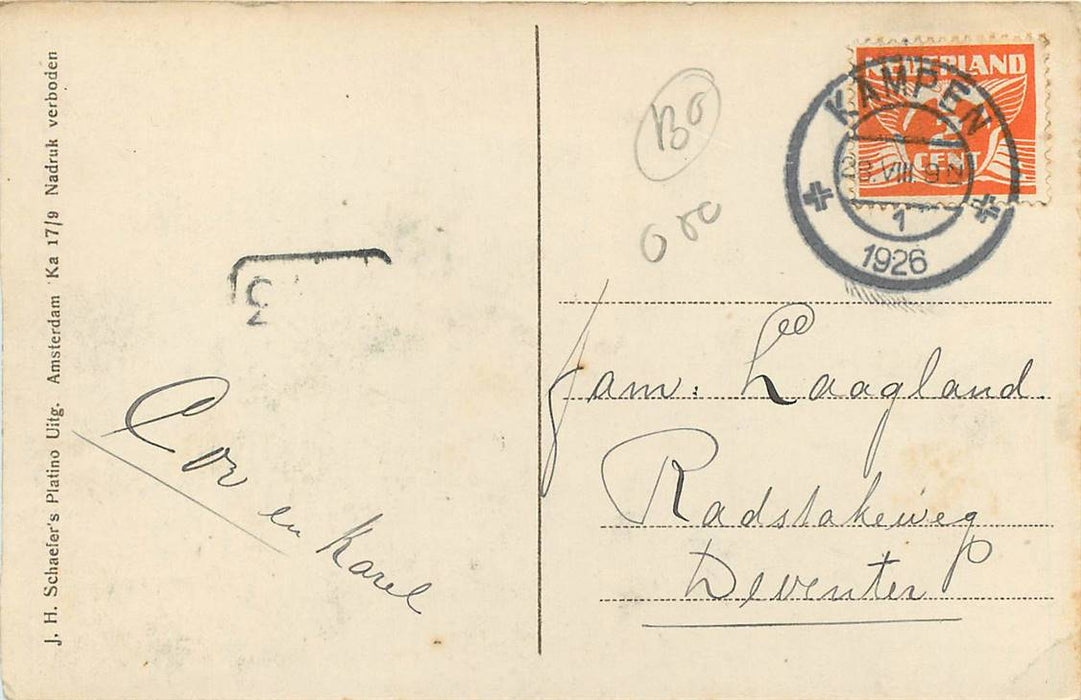 J. H. Schaefer's Platino Uitg. Amsterdam Ka 17/9 Nadruk verboden
Cor
en Karel
NEDERLAND
CENT
KAMPEN
VIII
1
1926
Fam: Laagland.
Radstakeweg
Deventer